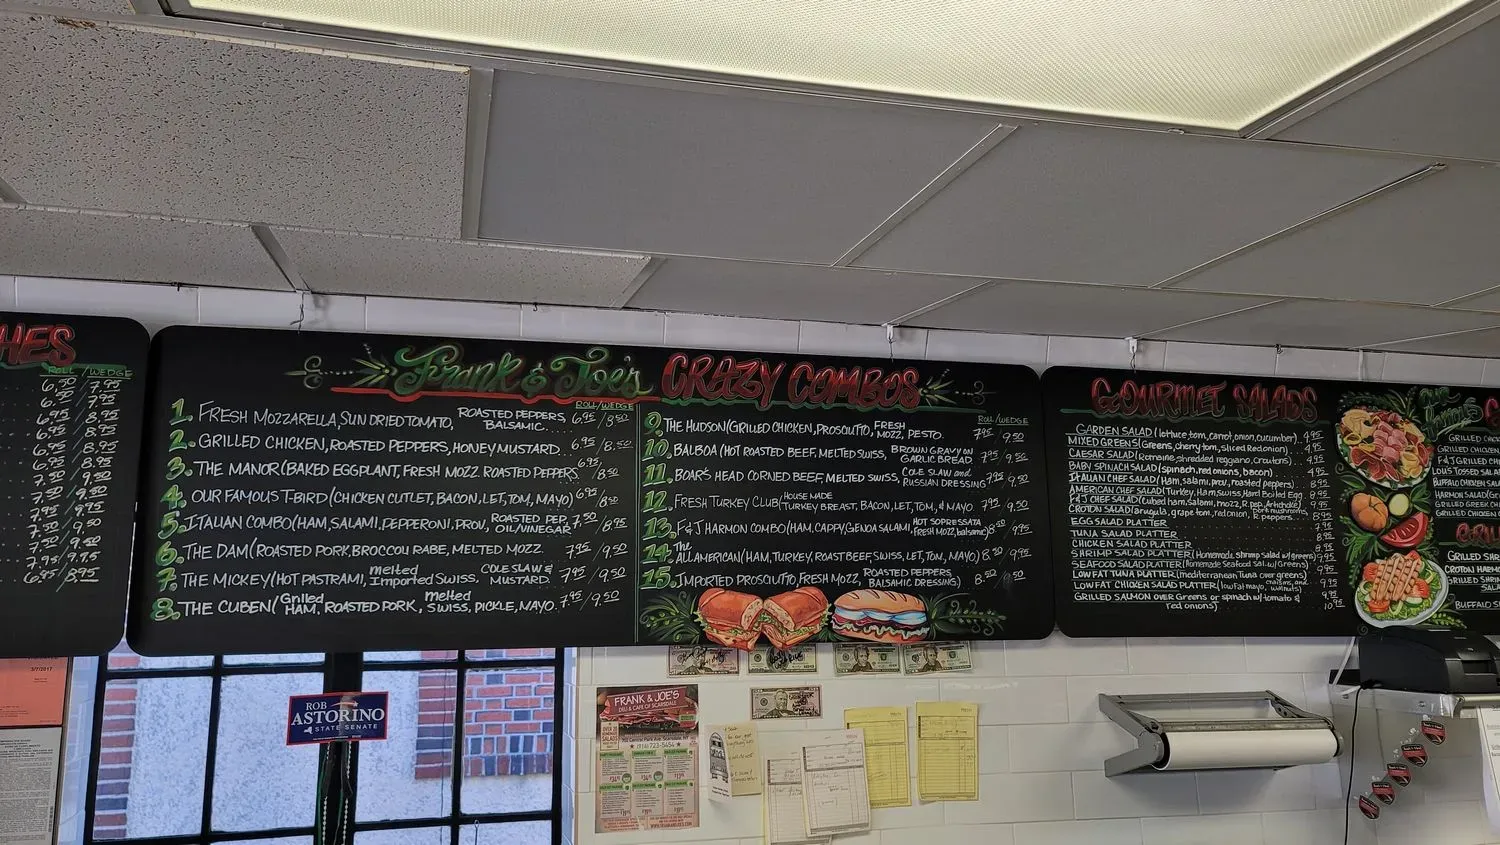 HES
ROLL / WEDGE
6.50 / 7.95
6.50 / 7.95
6.95 / 8.95
6.95 / 8.95
6.95 / 8.95
7.50 / 9.50
7.50 / 9.50
7.95 / 9.95
7.50 / 9.50
7.50 / 9.50
7.95 / 9.75
6.95 / 8.95
Frank & Joe's CRAZY COMBOS
ROLL/WEDGE
1. FRESH MOZZARELLA, SUN DRIED TOMATO, ROASTED PEPPERS BALSAMIC. 6.95 / 8.50
2. GRILLED CHICKEN, ROASTED PEPPERS, HONEY MUSTARD. 6.95 / 8.50
3. THE MANOR (BAKED EGGPLANT, FRESH MOZZ. ROASTED PEPPERS 6.95 / 8.50
4. OUR FAMOUS T-BIRD (CHICKEN CUTLET, BACON, LET, TOM, MAYO) 6.95 / 8.50
5. ITALIAN COMBO (HAM, SALAMI, PEPPERONI, PROV, ROASTED PEP, OIL/VINEGAR 7.50 / 8.95
6. THE DAM (ROASTED PORK, BROCCOLI RABE, MELTED MOZZ. 7.95 / 9.50
7. THE MICKEY (HOT PASTRAMI, melted Imported SWISS, COLE SLAW & MUSTARD. 7.95 / 9.50
8. THE CUBEN (Grilled HAM, ROASTED PORK, melted SWISS, PICKLE, MAYO. 7.95 / 9.50
ROLL / WEDGE
9. THE HUDSON (GRILLED CHICKEN, PROSCIUTTO, FRESH MOZZ, PESTO. 7.95 / 9.50
10. BALBOA (HOT ROASTED BEEF, MELTED SWISS, BROWN GRAVY ON GARLIC BREAD 7.95 / 9.50
11. BOAR'S HEAD CORNED BEEF, MELTED SWISS, COLE SLAW and RUSSIAN DRESSING 7.95 / 9.50
12. FRESH TURKEY CLUB (HOUSE MADE TURKEY BREAST, BACON, LET, TOM, & MAYO 7.95 / 9.50
13. F&J HARMON COMBO (HAM, CAPPY, GENOA SALAMI, HOT SOPRESSATA FRESH MOZZ, balsamic) 8.50 / 9.95
14. The ALL AMERICAN (HAM, TURKEY, ROAST BEEF, SWISS, LET, TOM, MAYO) 8.50 / 9.95
15. IMPORTED PROSCIUTTO, FRESH MOZZ, ROASTED PEPPERS, BALSAMIC DRESSING) 8.50
GOURMET SALADS
GARDEN SALAD (lettuce, tom, carrot, onion, cucumber) 4.95
MIXED GREENS (Greens, cherry tom, sliced Red onion) 4.95
CAESAR SALAD (Romaine, shredded reggiano, Croutons) 4.95
BABY SPINACH SALAD (spinach, red onions, bacon) 4.95
ITALIAN CHEF SALAD (Ham, salami, prov, roasted peppers) 8.95
AMERICAN CHEF SALAD (Turkey, Ham, swiss, Hard Boiled Egg 8.95
F&J CHEF SALAD (cubed ham, salami, mozz, R. pep, Artichoke) 9.95
CROTON SALAD (arugula, grape tom, red onion, portmushrooms R. peppers 8.95
EGG SALAD PLATTER 7.95
TUNA SALAD PLATTER 8.95
CHICKEN SALAD PLATTER 8.95
SHRIMP SALAD PLATTER (Homemade shrimp salad w/ greens) 9.95
SEAFOOD SALAD PLATTER (Homemade Seafood Sal. w/ Greens)
LOW FAT TUNA PLATTER (mediterranean Tuna over greens) 9.95
LOW FAT CHICKEN SALAD PLATTER
GRILLED SALMON OVER Greens or spinach w/ tomato & red onions) 10.95
GRILLED CHICKEN
GRILLED CHICKEN
F&J GRILLED CH
LOU'S TOSSED SALA
BUFFALO CHICKEN S
HARMON SALAD (Gr
GRILLED GREEK C
GRILLED CHICKEN
GRILLED SHR
CROTON HARM
GRILLED SHRIMP
BUFFALO S
3/7/2017
ROB
ASTORINO
STATE SENATE
FRANK & JOE'S
DELI & CAFE OF SCARSDALE
(914) 723-5454